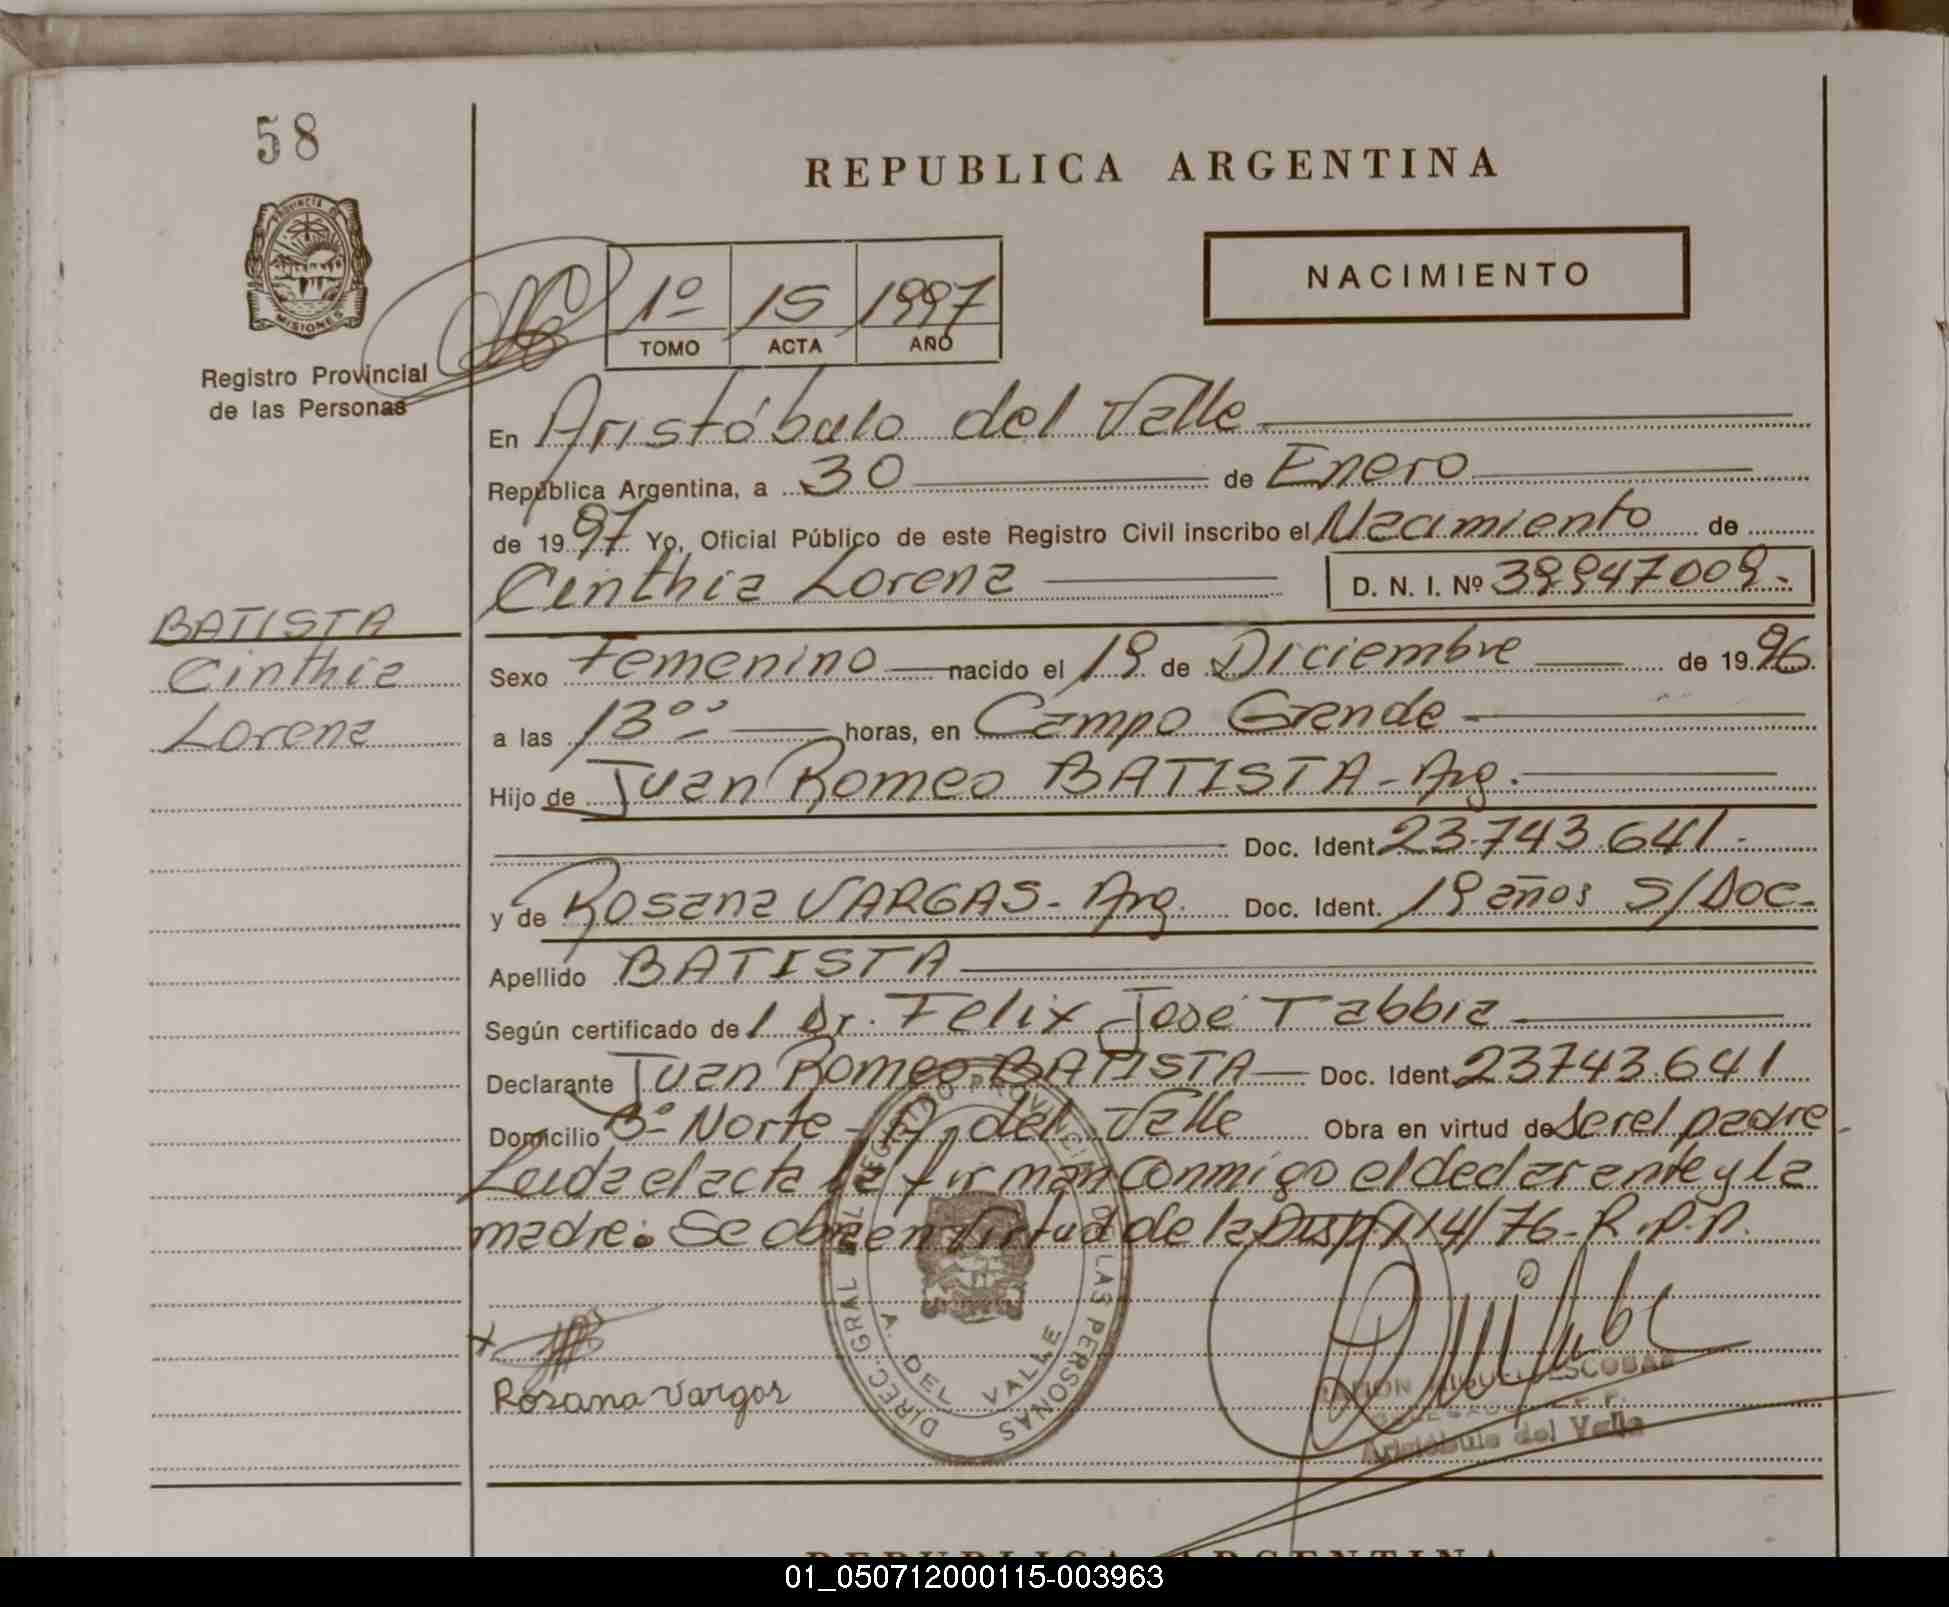 58
REPUBLICA ARGENTINA
PROVINCIA DE
MISIONES
Registro Provincial
de las Personas
1º 15 1997
TOMO ACTA AÑO
NACIMIENTO
En Aristóbulo del Valle
República Argentina, a 30 de Enero
de 1997 Yo, Oficial Público de este Registro Civil inscribo el Nacimiento de
Cinthia Lorena D. N. I. Nº 39.947.009.-
BATISTA
Cinthia
Lorena
Sexo Femenino nacido el 19 de Diciembre de 1996
a las 13ºº horas, en Campo Grande
Hijo de Juan Romeo BATISTA - Arg.
Doc. Ident. 23.743.641.-
y de Rosana VARGAS - Arg. Doc. Ident. 19 años S/Doc.
Apellido BATISTA
Según certificado del Dr. Felix José Tabbia
Declarante Juan Romeo BATISTA Doc. Ident. 23743.641
Domicilio Bº Norte - A. del Valle Obra en virtud de Ser el padre
Leida el acta la firman conmigo el declarante y la
madre. Se obra en virtud de la Disp. 114/76 - R.P.P.
DIREC. GRAL REGISTRO PROVINCIAL DE LAS PERSONAS
A. DEL VALLE
x
Rosana Vargas
RAMON MIGUEL ESCOBAR
Aristóbulo del Valle
REPUBLICA ARGENTINA
01_050712000115-003963